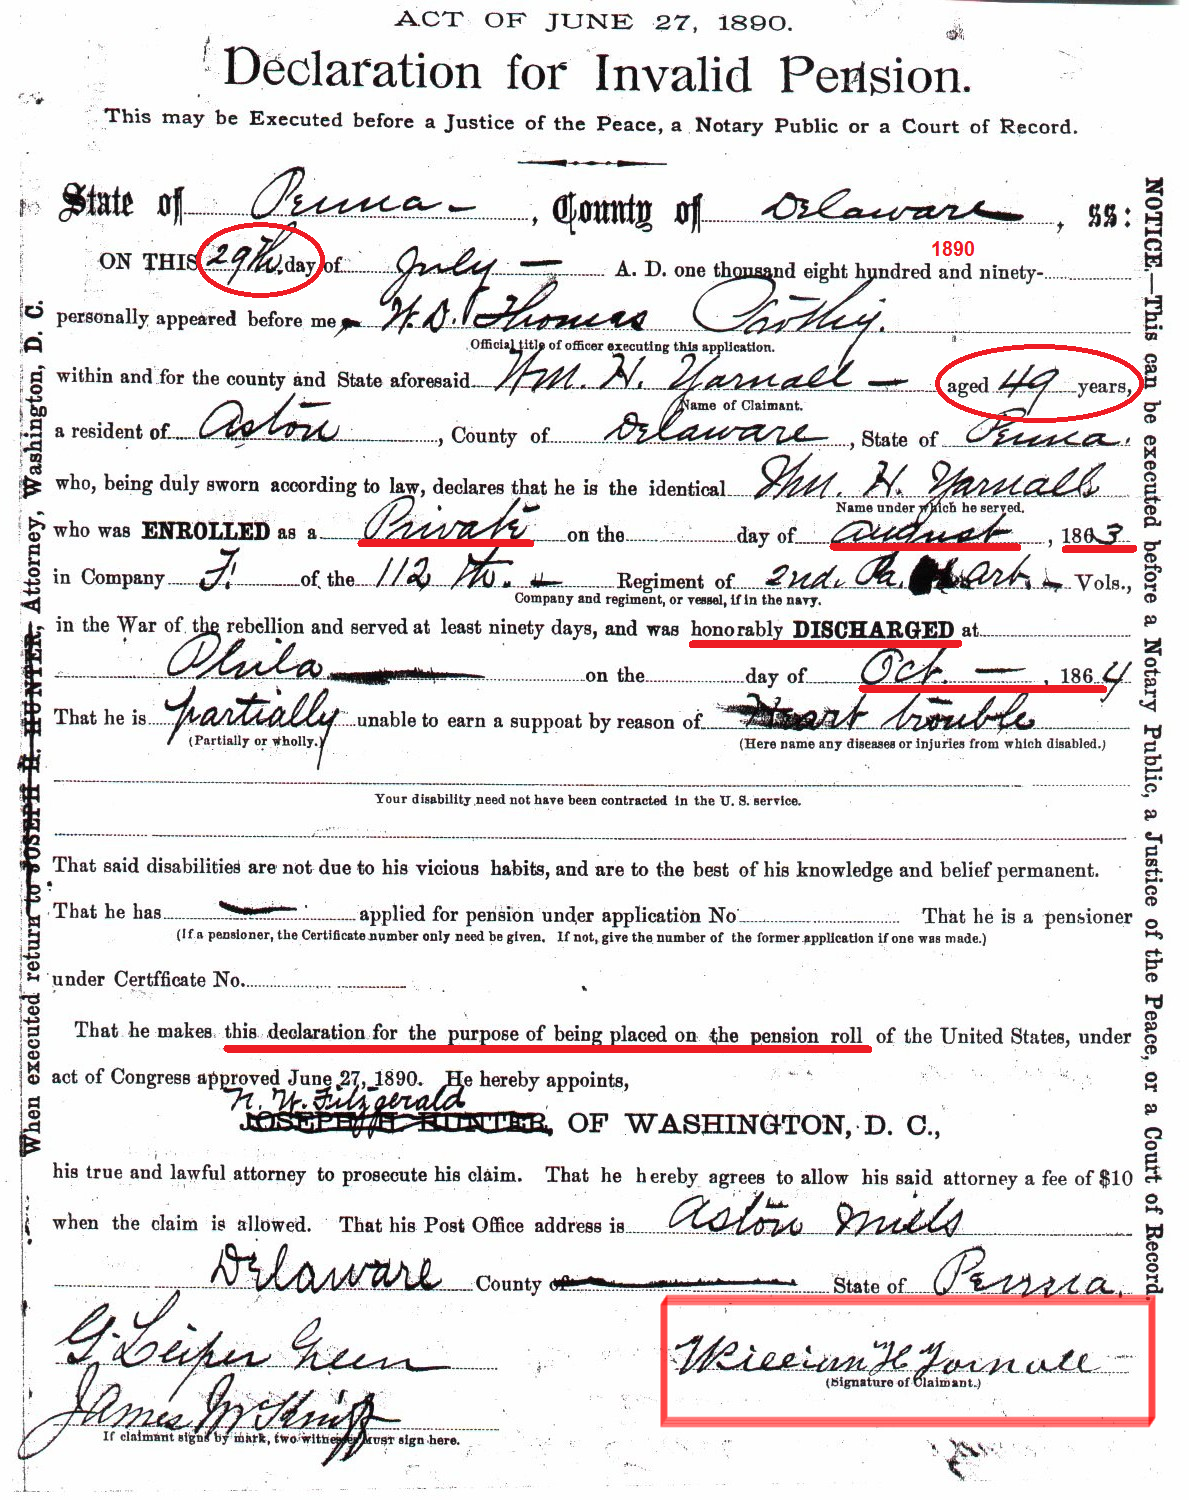 ACT OF JUNE 27, 1890.
Declaration for Invalid Pension.
This may be Executed before a Justice of the Peace, a Notary Public or a Court of Record.
State of Penna- , County of Delaware , ss:
1890
ON THIS 29th day of July - A. D. one thousand eight hundred and ninety-
personally appeared before me W. D. Thomas Prothy.
Official title of officer executing this application.
within and for the county and State aforesaid Wm. H. Yarnall - aged 49 years,
Name of Claimant.
a resident of Aston , County of Delaware , State of Penna.
who, being duly sworn according to law, declares that he is the identical Wm. H. Yarnall
Name under which he served.
who was ENROLLED as a Private on the day of august , 1863
in Company F. of the 112 th. - Regiment of 2nd. Pa. Art. - Vols.,
Company and regiment, or vessel, if in the navy.
in the War of the rebellion and served at least ninety days, and was honorably DISCHARGED at
Phila on the day of Oct. - , 1864
That he is partially unable to earn a suppoat by reason of Heart trouble
(Partially or wholly.) (Here name any diseases or injuries from which disabled.)
Your disability need not have been contracted in the U. S. service.
That said disabilities are not due to his vicious habits, and are to the best of his knowledge and belief permanent.
That he has applied for pension under application No That he is a pensioner
(If a pensioner, the Certificate number only need be given. If not, give the number of the former application if one was made.)
under Certfficate No.
That he makes this declaration for the purpose of being placed on the pension roll of the United States, under
act of Congress approved June 27, 1890. He hereby appoints,
N. W. Fitzgerald
JOSEPH H. HUNTER, OF WASHINGTON, D. C.,
his true and lawful attorney to prosecute his claim. That he hereby agrees to allow his said attorney a fee of $10
when the claim is allowed. That his Post Office address is Aston Mills
Delaware County of State of Penna.
G. Leiper Green
William H Yarnall
(Signature of Claimant.)
James McKniff
If claimant signs by mark, two witnesses must sign here.
When executed return to JOSEPH H. HUNTER, Attorney, Washington, D. C.
NOTICE.—This can be executed before a Notary Public, a Justice of the Peace, or a Court of Record.